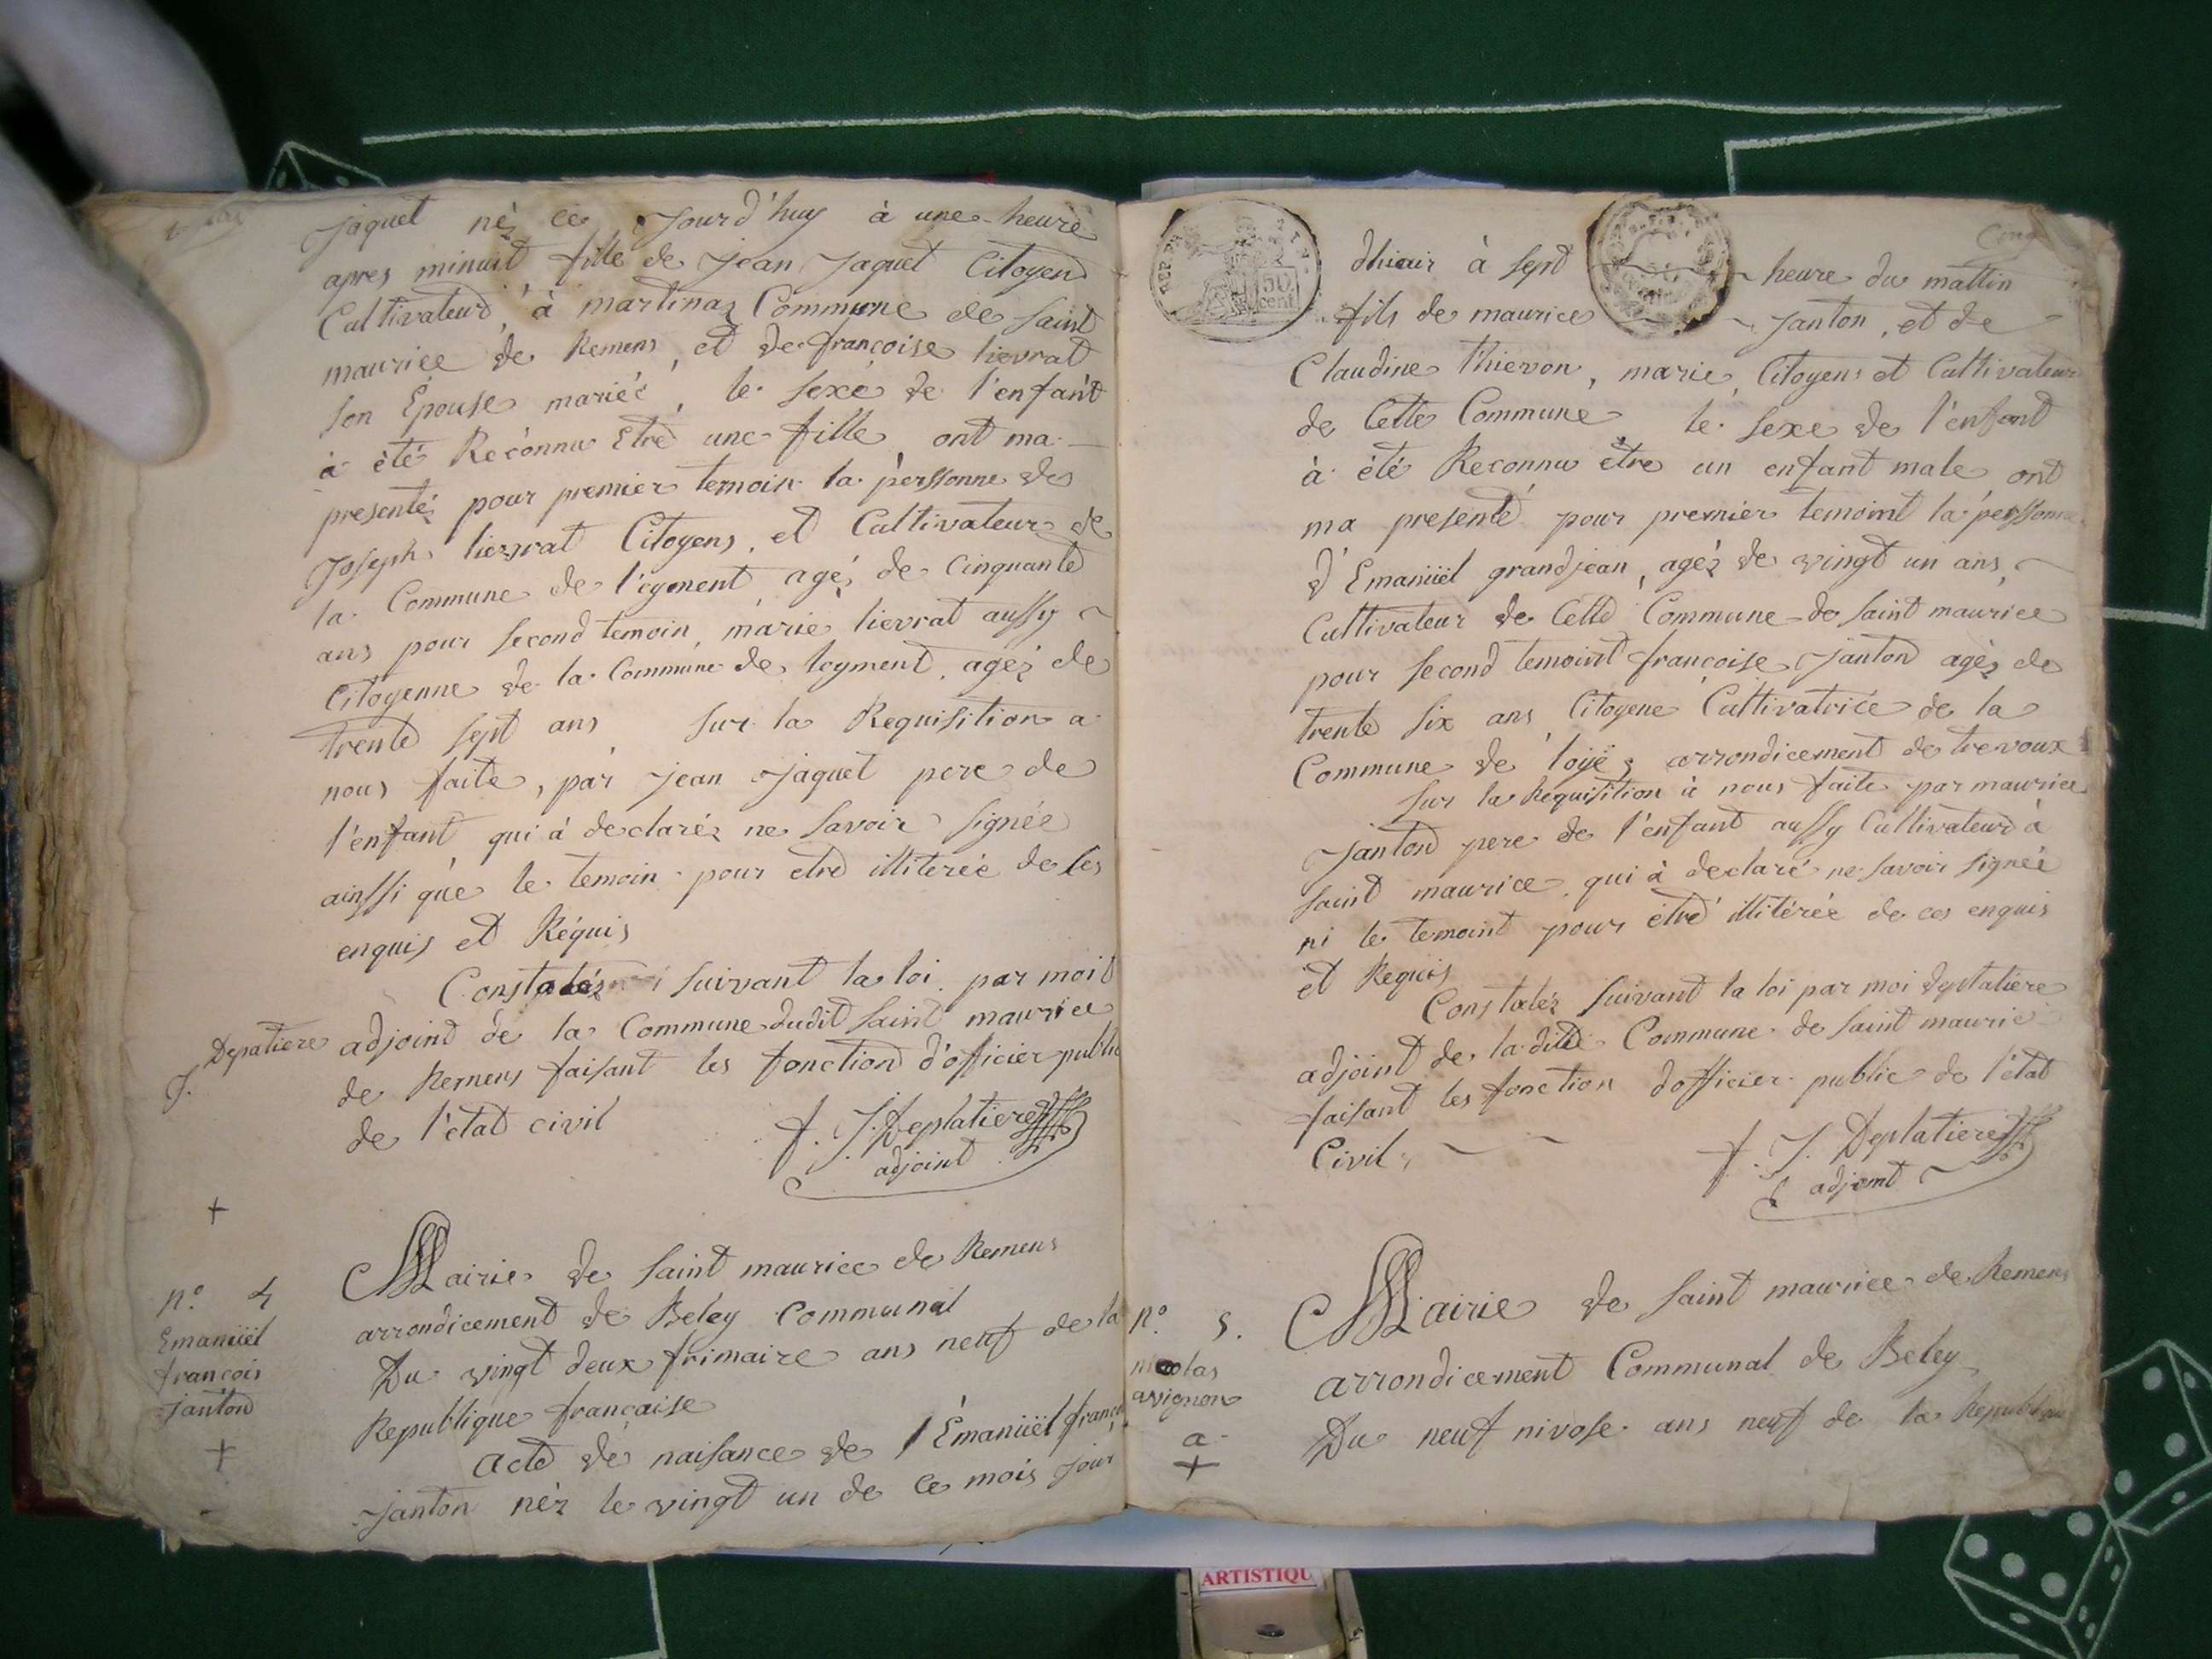 jaquet néz ce jourd'huy à une heure
apres minuit fille de jean jaquet Citoyen
Cultivateur, à martinaz Commune de saint
maurice de Remens, et de francoise lievrat
son Épouse mariéé, le sexe de l'enfant
à été Reconnu Etre une fille ont ma
presentéz pour premier temoin la pèrssonne de
Joseph lievrat Citoyens, et Cultivateur de
la Commune de l'oyment, agéz de Cinquante
ans pour second temoin, marie lievrat aussy
Citoyenne de la Commune de loyment, agéz de
trente sept ans sur la Requisition a
nous faite, par jean jaquet pere de
l'enfant qui à declaréz ne savoir signée
ainssi que le temoin pour etre illiterée de ses
enquis et Réquis
Constatéz suivant la loi par moit
Depatiere adjoint de la Commune dudit saint maurice
J.
de Remens faisant les fonction d'officier public
de l'état civil
f. J. Deplatiere
adjoint
+
Mairie de saint maurice de Remens
n.º 4
arrondicement de Beley Communal
Emanüel
Du vingt deux frimaire ans neuf de la
francois
janton
Republique francaise
Acte de naisance de Émanüel franço
+
janton néz le vingt un de ce mois jour
Cinq
REP. FRA
50 cent
dhiair à sept heure du mattin
fils de maurice janton, et de
Claudine thievon, marie, Citoyens et Cultivateur
de Cette Commune le sexe de l'enfant
à été Reconnu être un enfant male ont
ma presenté pour premier temoint la perssonne
d'Emanüel grandjean, agéz de vingt un ans,
Cultivateur de Cette Commune de saint maurice
pour second temoint françoise janton agéz de
trente six ans Citoyene Cultivatrice de la
Commune de loyë, arrondicement de trevoux
sur la Requisition à nous faite par maurice
janton pere de l'enfant aussy Cultivateur à
saint maurice, qui à declaré ne savoir signée
ni le temoint pour étre illitérée de ces enquis
et Requis
Constatéz suivant la loi par moi Deplatiere
adjoint de la dite Commune de saint maurice
faisant les fonction dofficier public de l'état
Civil
f. J. Deplatiere
adjoint
n.º 5.
Mairie de saint maurice de Remens
nicolas
avignon
arrondicement Communal de Beley
a
Du neuf nivose ans neuf de la Republique
+
ARTISTIQU